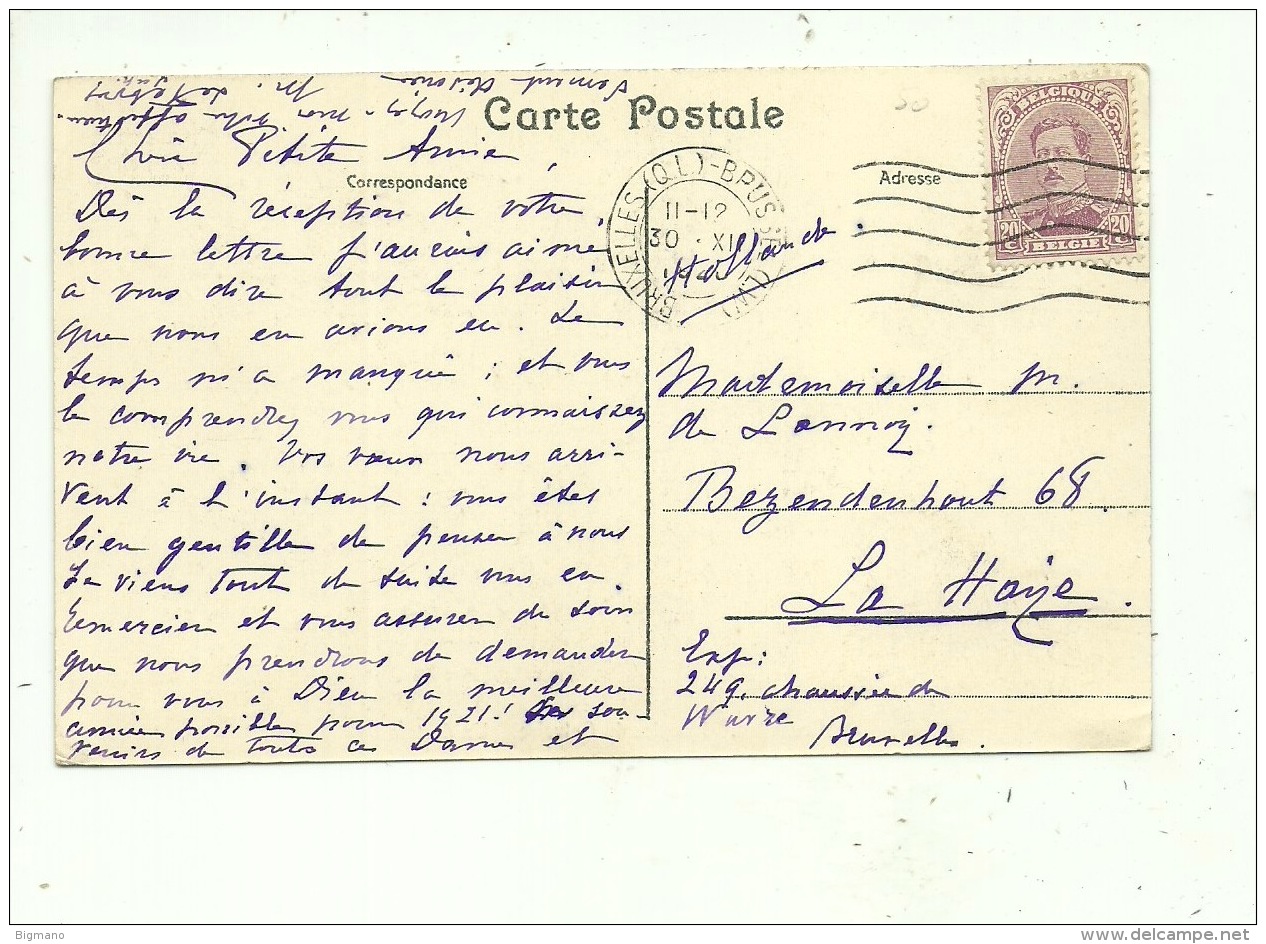 Carte Postale
Correspondance
Adresse
Chère Petite Amie,
Dès la réception de votre
bonne lettre j'aurais aimé
à vous dire tout le plaisir
que nous en avions eu. Le
temps m'a manqué ; et vous
le comprendrez vous qui connaissez
notre vie. Vos vœux nous arri-
vent à l'instant : vous êtes
bien gentille de penser à nous
Je viens tout de suite vous en
remercier et vous assurer du soin
que nous prendrons de demander
pour vous à Dieu la meilleure
année possible pour 1921! sou-
venirs de toutes ces Dames et
BRUXELLES (Q.L.) - BRUSSEL (L.W)
11-12
30 XII
BELGIQUE
20c 20c
BELGIE
Hollande.
Mademoiselle M.
de Lannoy.
Bezendenhout 68.
La Haye.
Exp:
249, chaussée de
Wavre
Bruxelles.
Bigmano
www.delcampe.net